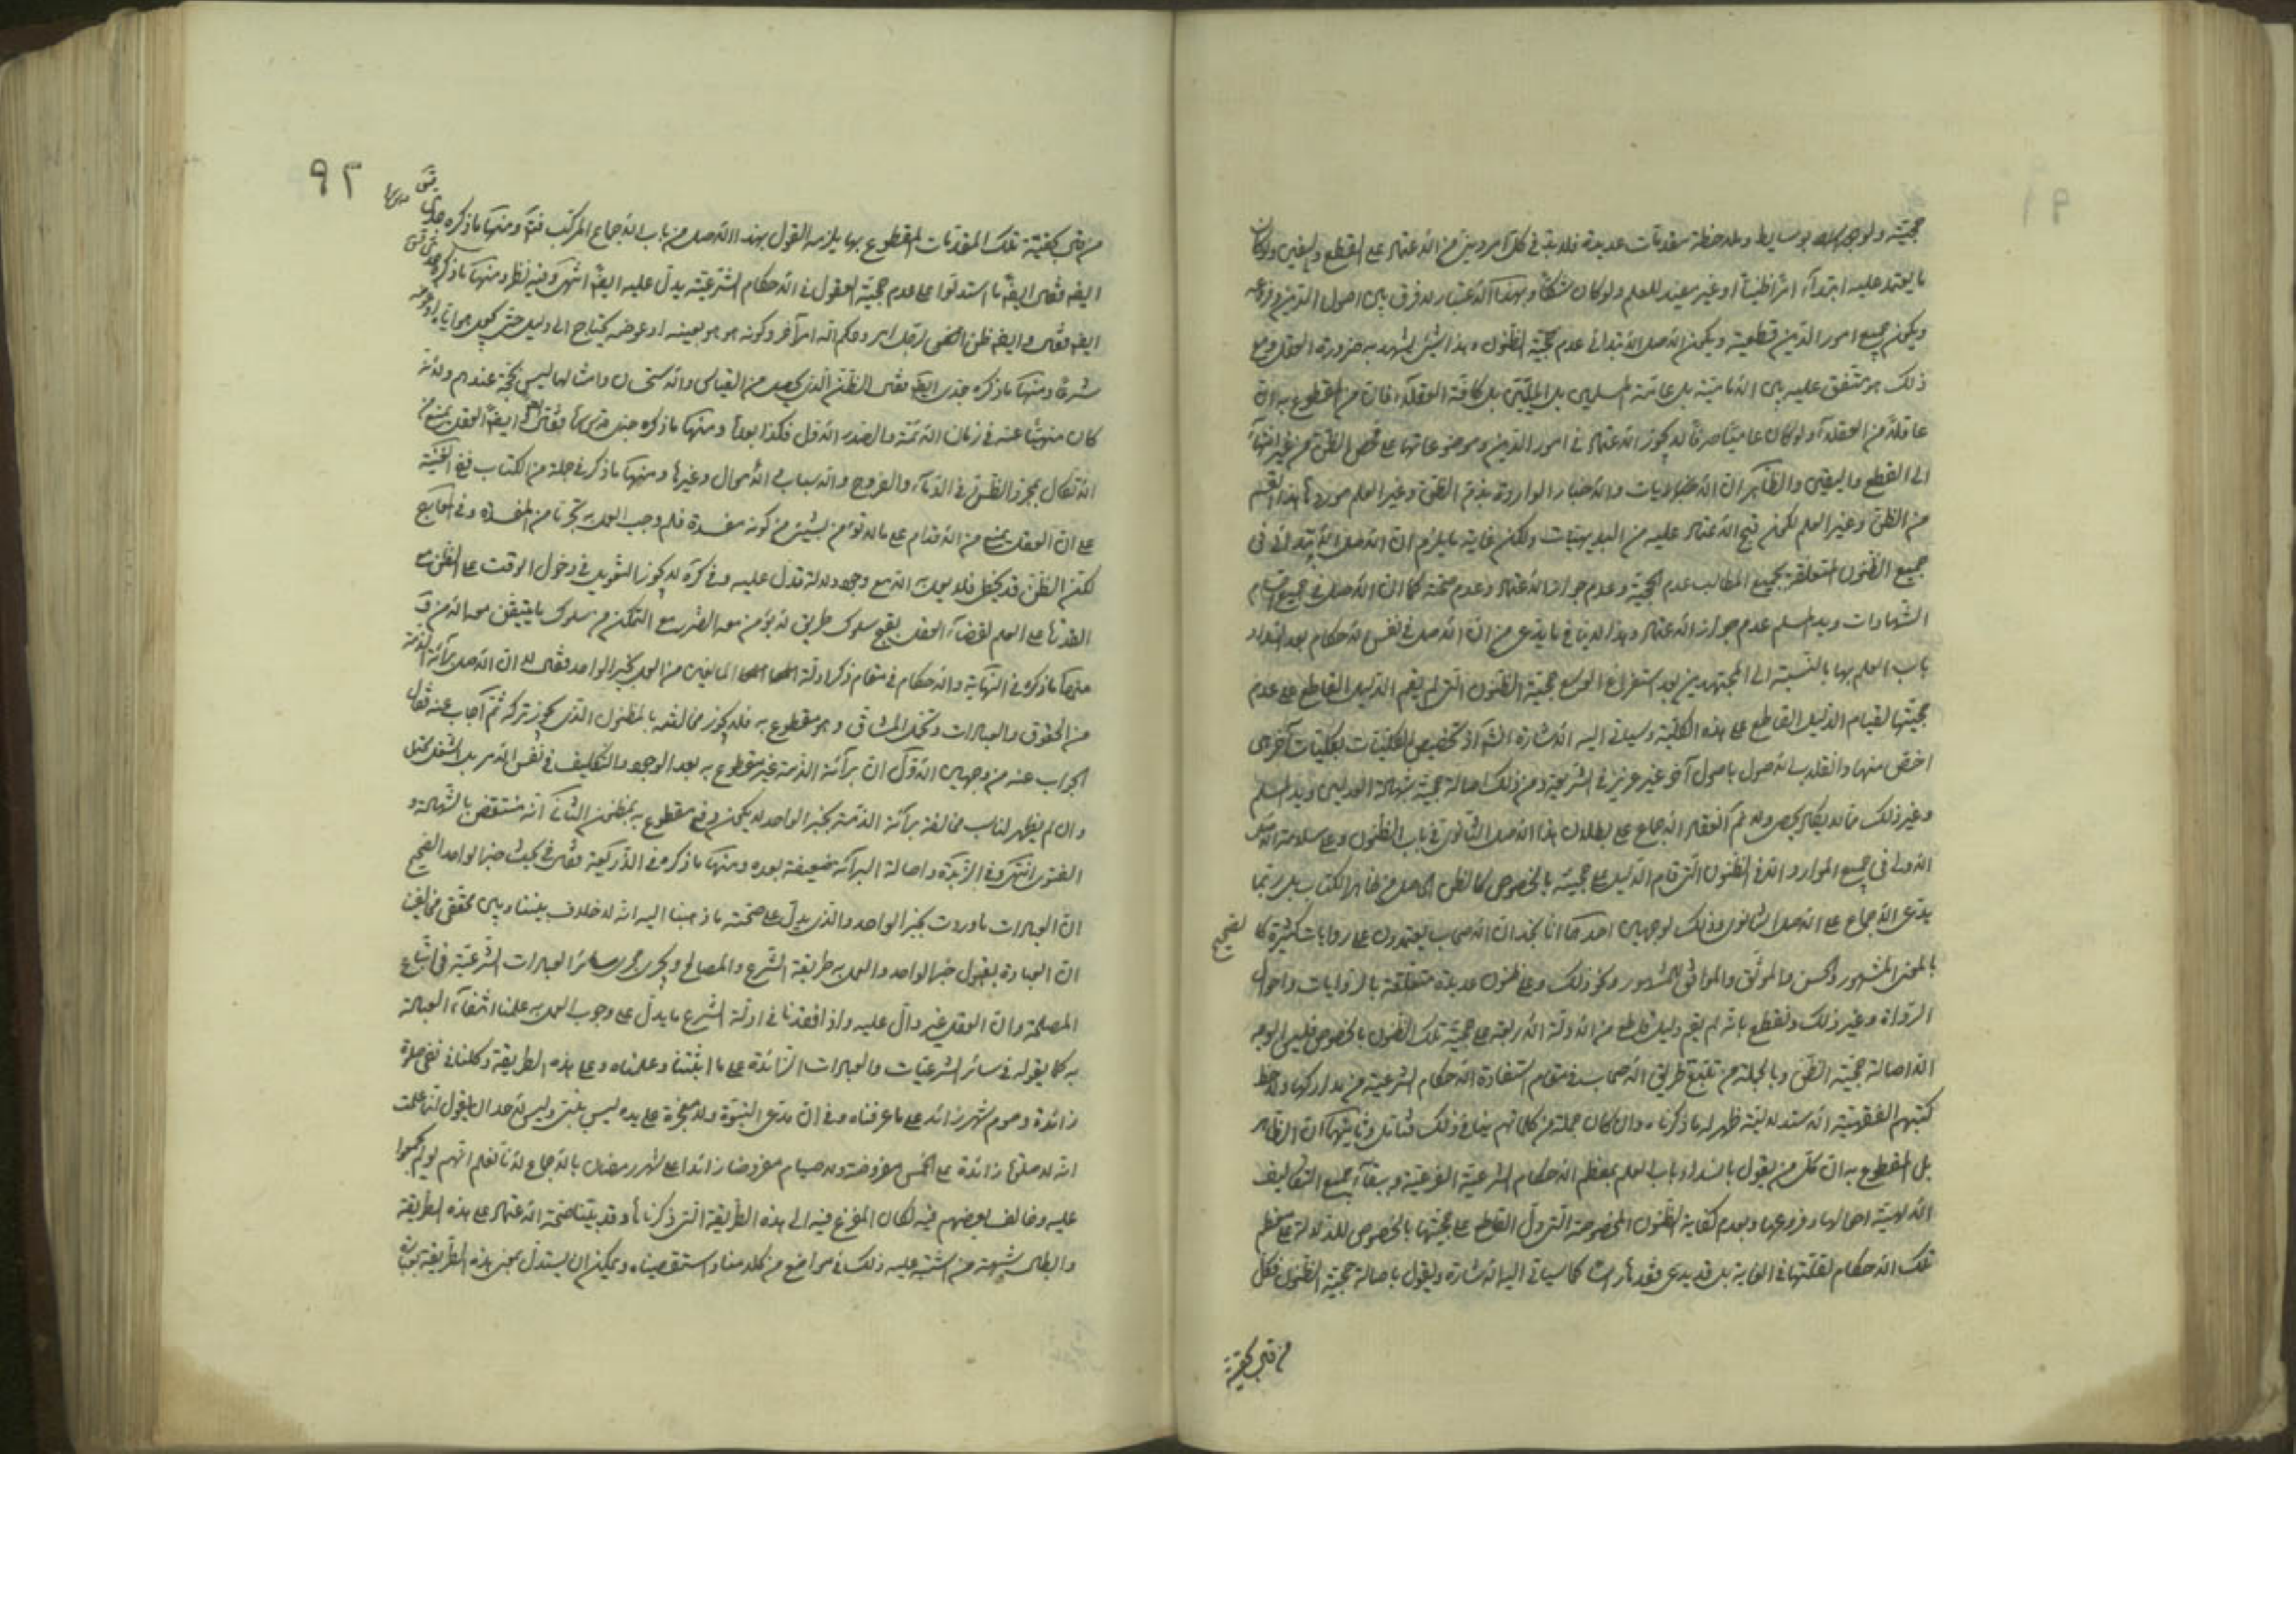 حجيته ولو بوسايط وملاحظة مقدمات عديدة فلا بد في كل امر ديني من الاعتماد على القطع واليقين ولو كان
ما يعتمد عليه ابتداء امرا ظنيا او غير مفيد للعلم ولو كان شكا وبهذا الاعتبار لا فرق بين اصول الدين وفروعه
ويكون جميع امور الدين قطعية ويكون الاصل الابتدائي عدم حجية الظنون وهذا الشيء يشهد به ضرورة العقل ومع
ذلك هو متفق عليه بين الامامية بل عامة المسلمين بل المليين بل كافة العقلاء فان من المقطوع به ان
عاقلا من العقلاء ولو كان عاميا صرفا لا يجوز الاعتماد في امور الدين وموضوعاتها على محض الظن من غير انتهاء
الى القطع واليقين والظاهر ان الايات والاخبار الواردة بذم الظن وغير العلم موردها هذا القسم
من الظن وغير العلم لكون قبح الاعتماد عليه من البديهيات ولكن غاية ما يلزم ان الاصل الابتدائي في
جميع الظنون المتعلقة بجميع المطالب عدم الحجية وعدم جواز الاعتماد وعدم صحته كما ان الاصل في جميع اقسام
الشهادات ويد المسلم عدم جواز الاعتماد وهذا لا ينافي ما يدعى من ان الاصل في نفس الاحكام بعد انسداد
باب العلم بها بالنسبة الى المجتهدين بعد استفراغ الوسع حجية الظنون التي لم يقم الدليل القاطع على عدم
حجيتها لقيام الدليل القاطع على هذه الكلية وسياتي اليه الاشارة انشاء الله اذ تخصيص الكليات بكليات اخرى
اخص منها وانقلاب الاصول باصول آخر غير عزيز في الشريعة ومن ذلك اصالة حجية شهادة العدلين ويد المسلم
وغير ذلك مما لا يكاد يحصى ولا ثم انعقاد الاجماع على بطلان هذا الاصل الثانوي في باب الظنون وعلى سلامة الاصل
الاولي في جميع الموارد الا في الظنون التي قام الدليل على حجيته بالخصوص كالظن الحاصل من ظاهر الكتاب بل ربما
يدعى الاجماع على الاصل الثانوي وذلك لوجهين احدهما انا نجد ان الاصحاب يعتمدون على روايات كثيرة كا لصحيح
بالمعنى المشهور والحسن والموثق والموافق للمشهور ونحو ذلك وعلى ظنون عديدة متعلقة بالروايات واحوال
الرواة وغير ذلك ونقطع بانه لم يقم دليل قاطع من الادلة الاربعة على حجية تلك الظنون بالخصوص فليس الوجه
الا اصالة حجية الظن وبالجملة من تتبع طريق الاصحاب في مقام استفادة الاحكام الشرعية من مداركها ولاحظ
كتبهم الفقهية الاستدلالية ظهر له ما ذكرناه وان كان جملة من كلماتهم ينافي ذلك فتامل وثانيهما ان الظاهر
بل المقطوع به ان كل من يقول بانسداد باب العلم بمعظم الاحكام الشرعية الفرعية وببقاء جميع التكاليف
الالهية اصالها وفروعها وبعدم كفاية الظنون المخصوصة التي دل القاطع على حجيتها بالخصوص للدلالة على معظم
تلك الاحكام لقلتها في الغاية بل قد يدعى فقدها راسا كما سياتي اليه الاشارة ويقول باصالة حجية الظنون فكل
٩٢
من قبل كيفية تلك المقدمات المقطوع بها يلزمه القول بهذا الاصل من باب الاجماع المركب فتم ومنها ما ذكره جدي
ايضا فقال ايضا ما استدلوا على عدم حجية العقول في الاحكام الشرعية يدل عليه ايضا انتهى وفيه نظر ومنها ما ذكره جدي
شرعا ومنها ما ذكره جدي ايضا فقال الظن الذي يحصل من القياس والاستحسان وامثالها ليس بحجة عندهم ولانه
كان منهيا عنه في زمان الائمة والصدر الاول فكذا بعدها ومنها ما ذكره جدي فقال ايضا العقل يمنع من
الاتكال بمجرد الظنون في الدماء والفروج والانساب والاموال وغيرها ومنها ما ذكر في جملة من الكتاب ففي الغنية
على ان العقل يمنع من الاقدام على ما لا تؤمن من كونه مفسدة فلم وجب العمل به تحرزا من المفسدة وفي المعارج
لكن الظن قد يخطي فلا يعمل به الا مع وجود دلالة تدل عليه وفي كره لا يجوز التعويل في دخول الوقت على الظن مع
القدرة على العلم لقضاء العقل بقبح سلوك طريق لا يؤمن معه الضرر مع التمكن من سلوك ما يتيقن معه الامن
منها ما ذكره في النهاية والاحكام في مقام ذكر ادلة المانعين من العمل بخبر الواحد فقال ان الاصل براءة الذمة
من الحقوق والعبادات وتحمل المشاق وهو مقطوع به فلا يجوز مخالفته بالمظنون الذي يجوز تركه ثم اجاب عنه فقال
الجواب عنه من وجهين الاول ان براءة الذمة غير مقطوع به بعد الوجود والتكليف في نفس الامر بل الشغل محتمل
وان لم يظهر لنا سبب مخالفة براءة الذمة بخبر الواحد لا يكون رفع مقطوع به بمظنون الثاني انه منتقض بالشهادة و
الفتوى انتهى وفي الزبدة واصالة البراءة ضعيفة بعده ومنها ما ذكره في الذريعة فقال في بحث خبر الواحد الصحيح
ان العبادات ما وردت بخبر الواحد والذي يدل على صحة ما ذهبنا اليه انه لا خلاف بيننا وبين محققي مخالفينا
ان العبادة بقبول خبر الواحد والعمل به طريقه الشرع والمصالح ويجري مجرى سائر العبادات الشرعية في اتباع
المصلحة وان العقل غير دال عليه واذا فقدنا في ادلة الشرع ما يدل على وجوب العمل به علمنا انتفاء العبادة
به كما يقوله في سائر الشرعيات والعبادات الزائدة على ما اثبتناه وعلمناه وعلى هذه الطريقة وكلنا في نفي صلوة
زائدة وصوم شهر زائد على ما عرفناه وفي ان مدعي النبوة ولا معجزة على يده ليس بنبي وليس لاحد ان يقول انما علمت
انه لا صلوة زائدة على الخمس مفروضة ولا صيام مفروضا زائدا على شهر رمضان بالاجماع لانا نعلم انهم لو لم يجمعوا
عليه وخالف بعضهم فيه لكان المفزع فيه الى هذه الطريقة التي ذكرناها وقد بينا صحة الاعتماد على هذه الطريقة
وابطال شبهة من اشتبه عليه ذلك في مواضع من كلامنا واستقصيناه ويمكن ان يستدل بمعنى هذه الطريقة